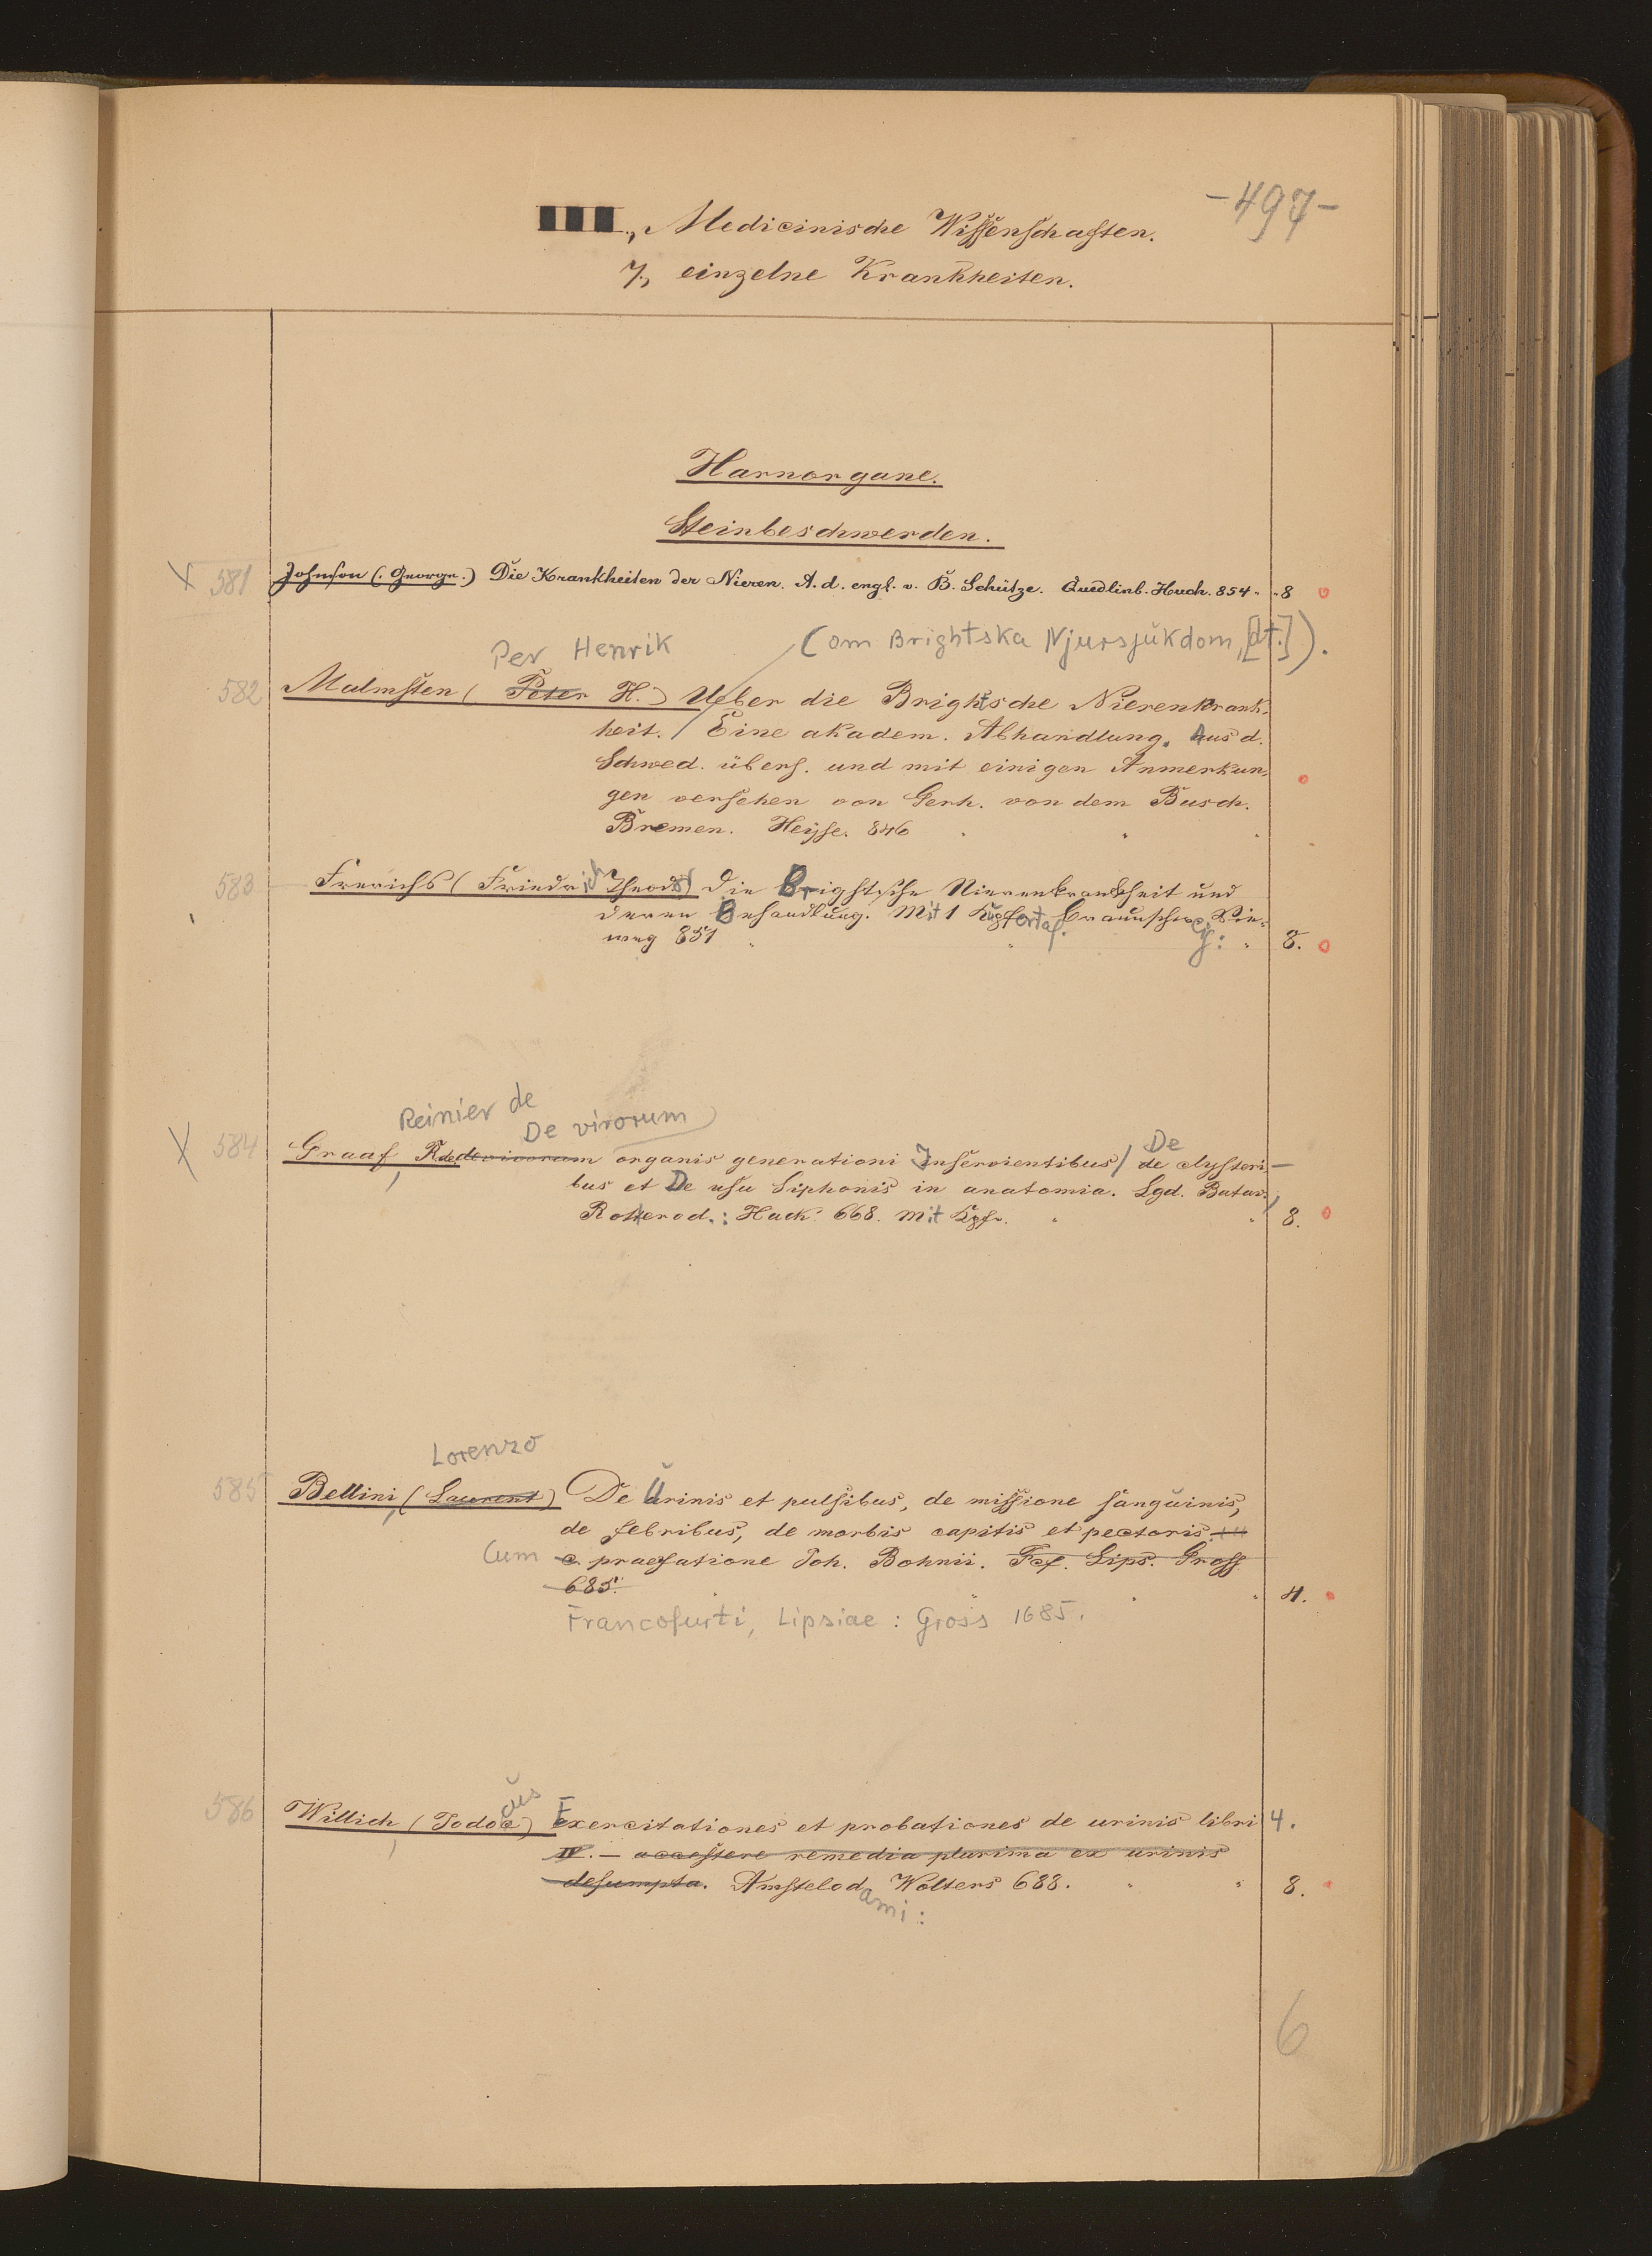 -497-
III., Medicinische Wissenschaften.
7., einzelne Krankheiten.
Harnorgane.
Steinbeschwerden.
X 581 Johnson (. George.) Die Krankheiten der Nieren. A. d. engl. v. B. Schütze. Quedlinb. Huch. 854 " " 8 o
Per Henrik (om Brightska Njursjukdom, [dt.]).
582 Malmsten ( Peter H.) Ueber die Brightsche Nierenkrank-
heit. / Eine akadem. Abhandlung. Aus d.
Schwed. übers. und mit einigen Anmerkun-
gen versehen von Gerh. von dem Busch.
Bremen. Heyse. 846
583 Frerichs ( Friedrich Theodor) Die Brightsche Nierenkrankheit und
deren Behandlung. Mit 1 Kupfertaf. Braunschweig: Vie-
weg 851 " " " 8. o
Reinier de
De virorum
X 584 Graaf, R. de de virorum organis generationi Inservientibus/ De de clysteri-
bus et De usu Siphonis in anatomia. Lgd. Batav.,
Rotterod.: Hack. 668. Mit Kpfr. " " 8. o
Lorenzo
585 Bellini, (Laurent) De Urinis et pulsibus, de missione sanguinis,
de febribus, de morbis capitis et pectoris
Cum c. praefatione Joh. Bohnii. Fcf. Lips. Gross
685. " " " 4.
Francofurti, Lipsiae : Gross 1685.
586 Willich, (Jodocus) Exercitationes et probationes de urinis libri 4.
IV. - accessere remedia plurima ex urinis
desumpta. Amstelodami: Wolters 688. " " 8.
6